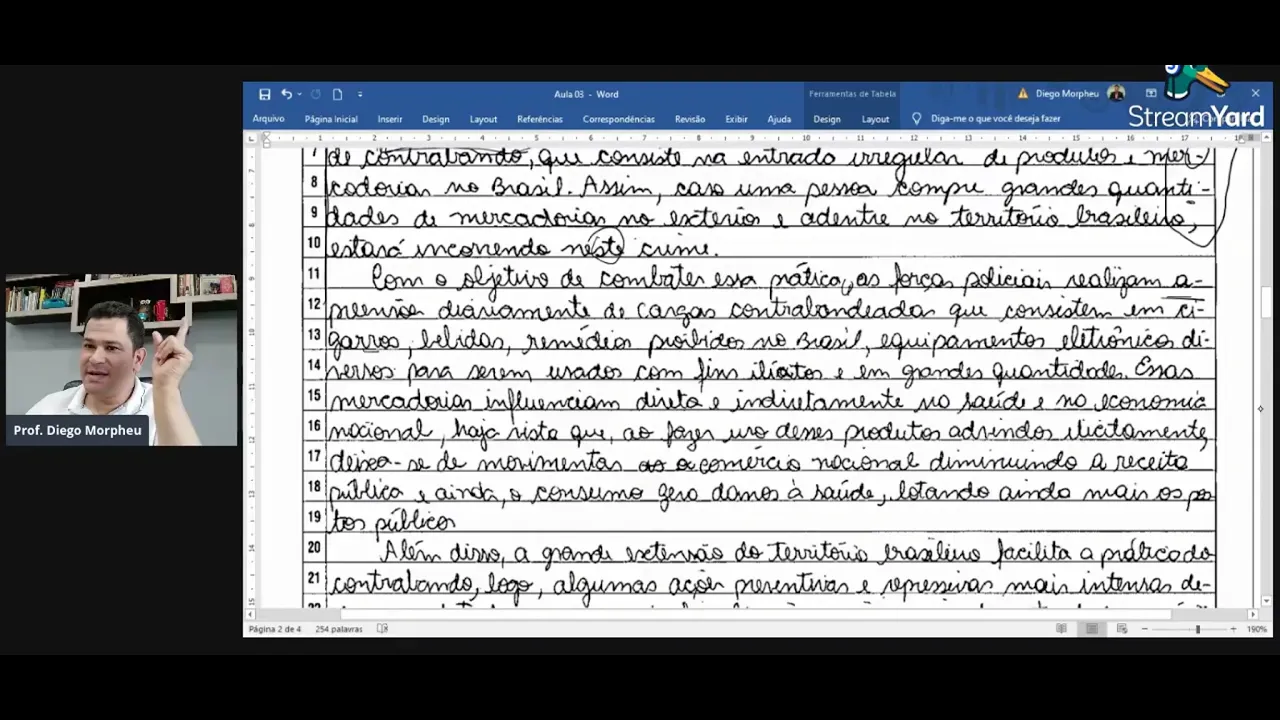 StreamYard
Aula 03 - Word
Ferramentas de Tabela
Diego Morpheu
Arquivo Página Inicial Inserir Design Layout Referências Correspondências Revisão Exibir Ajuda Design Layout Diga-me o que você deseja fazer
de contrabando, que consiste na entrada irregular de produtos e mer-
8 cadorias no Brasil. Assim, caso uma pessoa compre grandes quanti-
9 dades de mercadorias no exterio e adentre no território brasileiro,
10 estará incorrendo neste crime.
11 Com o objetivo de combater essa prática, as forças policiais realizam a-
12 preensões diariamente de cargas contrabandeadas que consistem em ci-
13 garros, bebidas, remédios proibidos no Brasil, equipamentos eletrônicos di-
14 versos para serem usados com fins ilícitos e em grandes quantidades. Essas
15 mercadorias influenciam direta e indiretamente na saúde e na economia
16 nacional, haja vista que, ao fazer uso desses produtos advindos ilicitamente,
17 deixa-se de movimentar o comércio nacional diminuindo a receita
18 pública e ainda, o consumo gera danos à saúde, lotando ainda mais os pos
19 tos público
20 Além disso, a grande extensão do território brasileiro facilita a prática do
21 contrabando, logo, algumas ações preventivas e repressivas mais intensas de-
Prof. Diego Morpheu
Página 2 de 4 254 palavras 190%